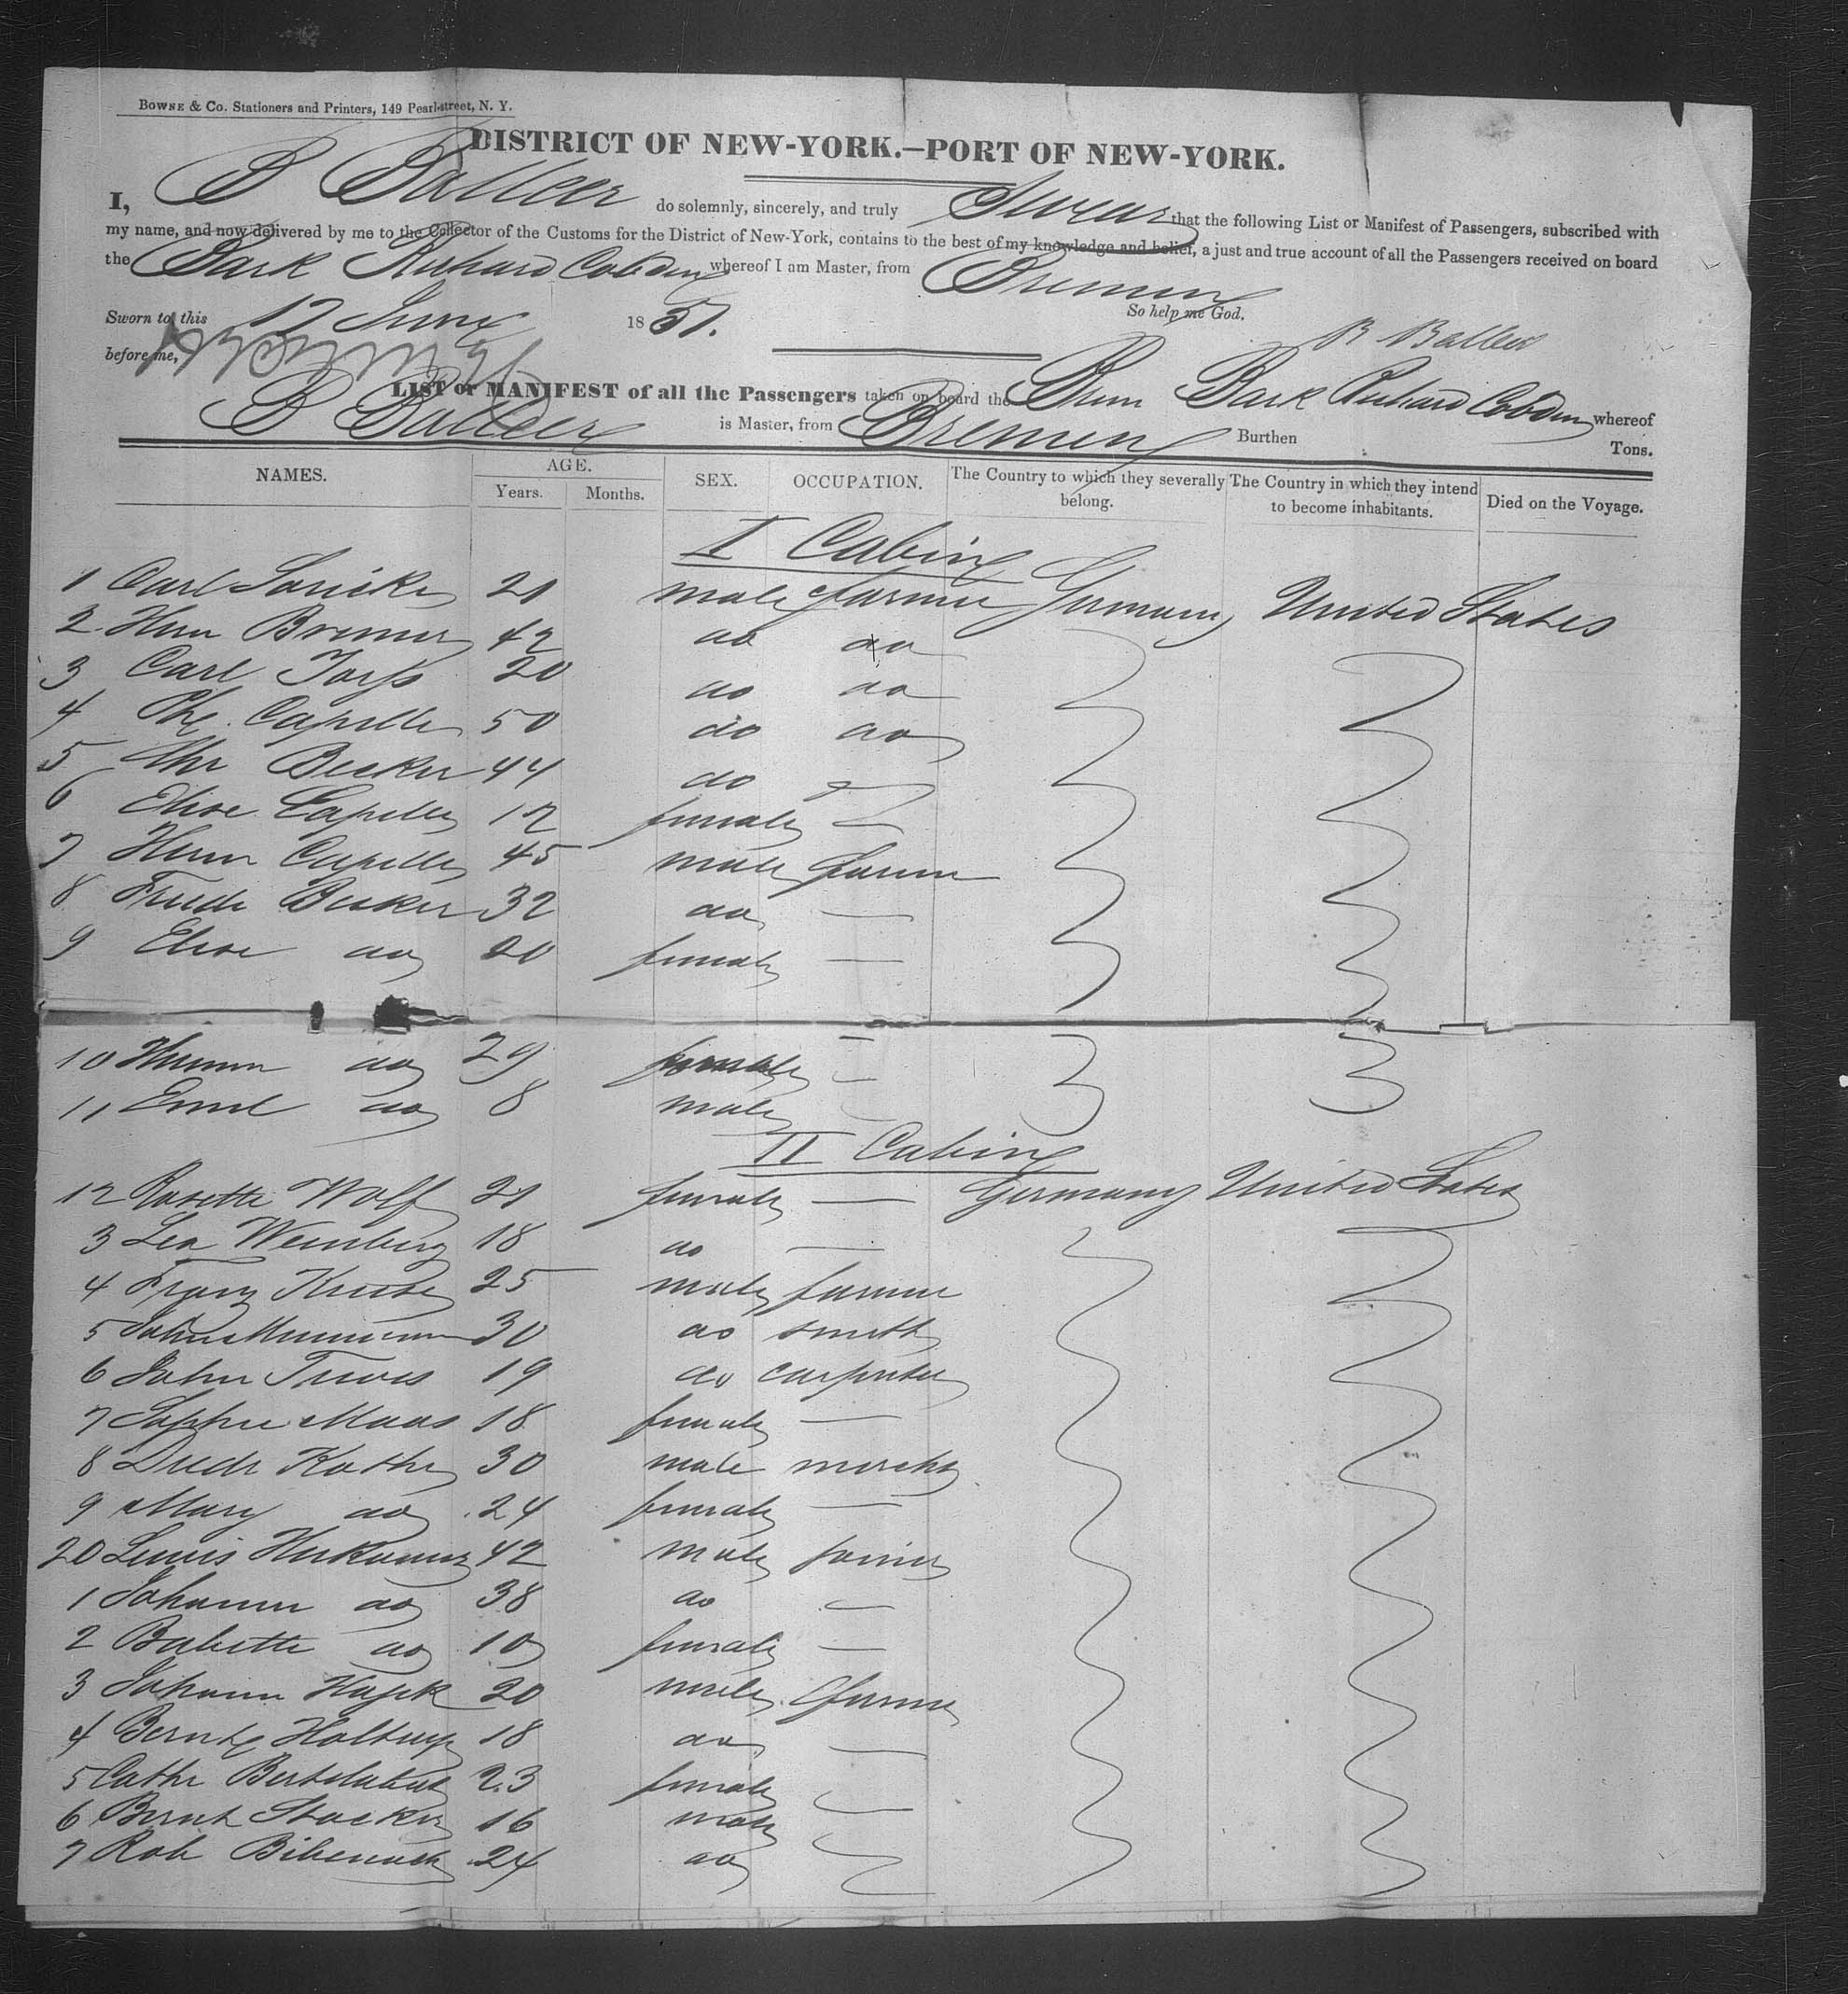 BOWNE & CO. Stationers and Printers, 149 Pearl-street, N. Y.
DISTRICT OF NEW-YORK.—PORT OF NEW-YORK.
I, B Balleer do solemnly, sincerely, and truly Swear that the following List or Manifest of Passengers, subscribed with
my name, and now delivered by me to the Collector of the Customs for the District of New-York, contains to the best of my knowledge and belief, a just and true account of all the Passengers received on board
the Bark Richard Cobden whereof I am Master, from Bremen
So help me God.
Sworn to, this 12 June 1851.
before me,
B Balleer
LIST or MANIFEST of all the Passengers taken on board the Brem Bark Richard Cobden whereof
B Balleer is Master, from Bremen Burthen Tons.
NAMES. AGE. SEX. OCCUPATION. The Country to which they severally belong. The Country in which they intend to become inhabitants. Died on the Voyage.
Years. Months.
I Cabin
1 Carl 21 male farmer Germany United States
2 Herm Bremer 42 do do
3 Carl 20 do do
4 Capelle 50 do do
5 Chr Becker 44 do
6 Elise Capelle 12 female
7 Herm Capelle 45 male farmer
8 Friedr Becker 32 do —
9 Elise do 20 female —
10 do 29 female
11 Emil do 8 male
II Cabin
12 Rosette Wolf 21 female — Germany United States
3 Lea Weinberg 18 do —
4 Franz Kruse 25 male farmer
5 John 30 do smith
6 John 19 do carpenter
7 Sophie Maas 18 female —
8 Diedr Kothe 30 male mercht
9 Mary do 24 female —
20 Lewis 42 male joiner
1 Johann do 38 do —
2 Babette do 10 female —
3 Johann 20 male farmer
4 Bernh Holtrup 18 do —
5 Cathr 23 female
6 Bernh Stocker 16 male
7 Rob 24 do